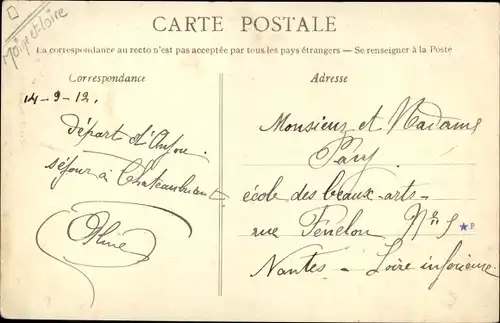 Maine et Loire
CARTE POSTALE
La correspondance au recto n'est pas acceptée par tous les pays étrangers — Se renseigner à la Poste
Correspondance
Adresse
14-9-12.
départ d'Anjou.
séjour à Chateaubriant
Monsieur et Madame
école des beaux-arts-
rue Fénelon N°
Nantes - Loire inférieure